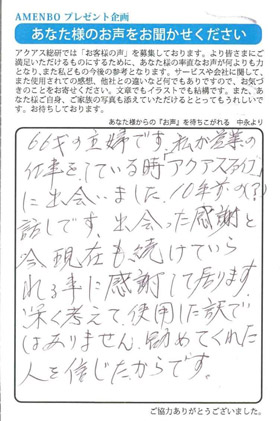 AMENBO プレゼント企画
あなた様のお声をお聞かせください
アクアス総研では「お客様の声」を募集しております。より皆さまにご
満足いただけるものにするために、あなた様の率直なお声が何よりも力
となり、また私どもの今後の参考となります。サービスや会社に関して、
また使用されての感想、他社との違いなど何でもありですので、お気づ
きのことをお寄せください。文章でもイラストでも結構です。また、あな
た様ご自身、ご家族の写真も添えていただけるととってもうれしいです。
お待ちしております。
あなた様からの『お声』を待ちこがれる 中永より
66才の主婦です。私が営業の
仕事をしている時「アクアス
に出会いました。10年
話しです。出会った感謝と
今現在も続けていら
れる事に感謝して居ります。
深く考えて使用した訳で
はありません。勧めてくれた
人を信じたからです。
ご協力ありがとうございました。